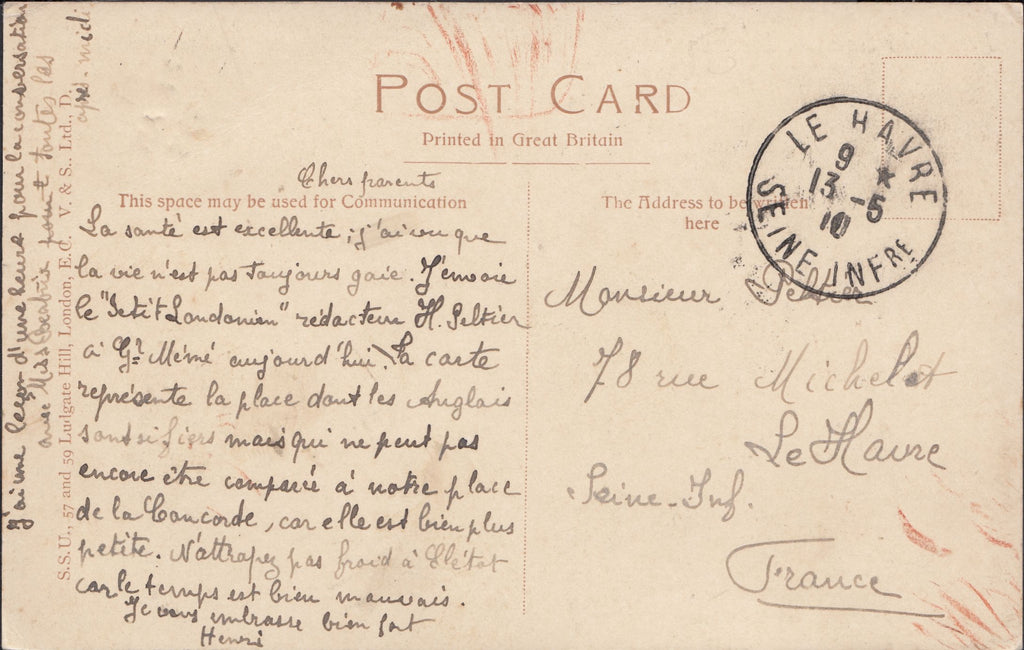 POST CARD
Printed in Great Britain
This space may be used for Communication
The Address to be written
here
S.S.U., 57 and 59 Ludgate Hill, London, E.C. V. & S., Ltd., D.
LE HAVRE
9 *
13 -5
10
SEINE INFRE
Chers parents
La santé est excellente ; j'ai vu que
la vie n'est pas toujours gaie. J'envoie
le "Petit Londonien" rédacteur H. Peltier
à Gd Mémé aujourd'hui. La carte
représente la place dont les Anglais
sont si fiers mais qui ne peut pas
encore être comparée à notre place
de la Concorde, car elle est bien plus
petite. N'attrapez pas froid à
car le temps est bien mauvais.
Je vous embrasse bien fort
Henri
J'ai une leçon d'une heure pour la conversation
avec Miss toutes les
après-midi
Monsieur Peltier
78 rue Michelet
Le Havre
Seine-Inf.
France